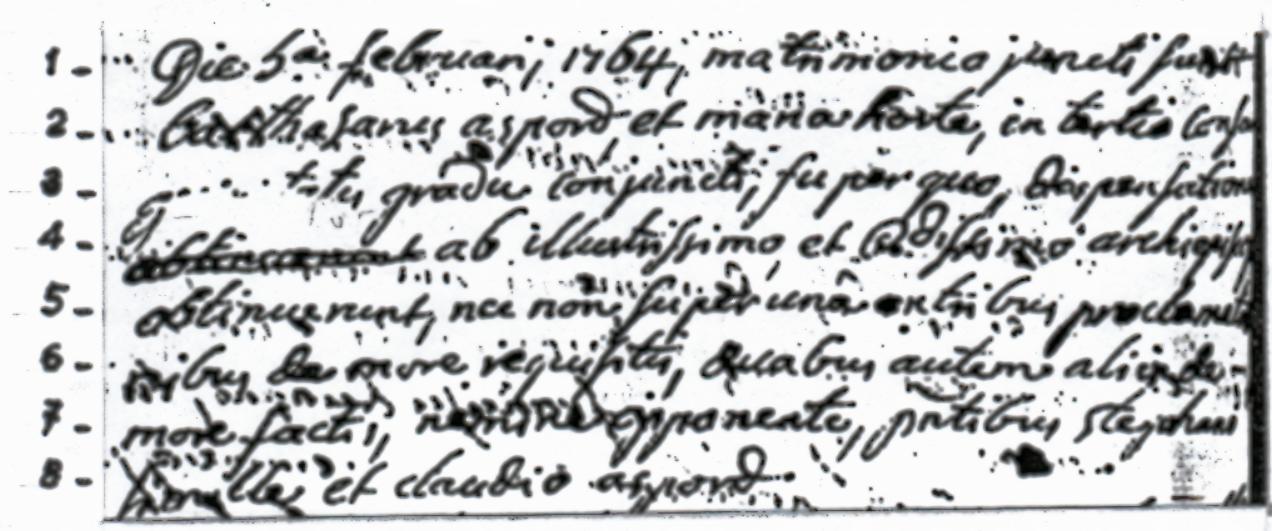 1 - Die 5a februarij 1764, matrimonio juncti sunt
2 - Balthasarus aspord et maria horte, in tertio
3 - gradu conjuncti, super quo, dispensationem
4 - ab illustrissimo et archiepisc
5 - obtinuerunt, nec non super una ex tribus proclamatio
6 - nibus de more requisitis, duabus autem aliis de
7 - more factis, nemine opponente, pntibus stephano
8 - et claudio aspord